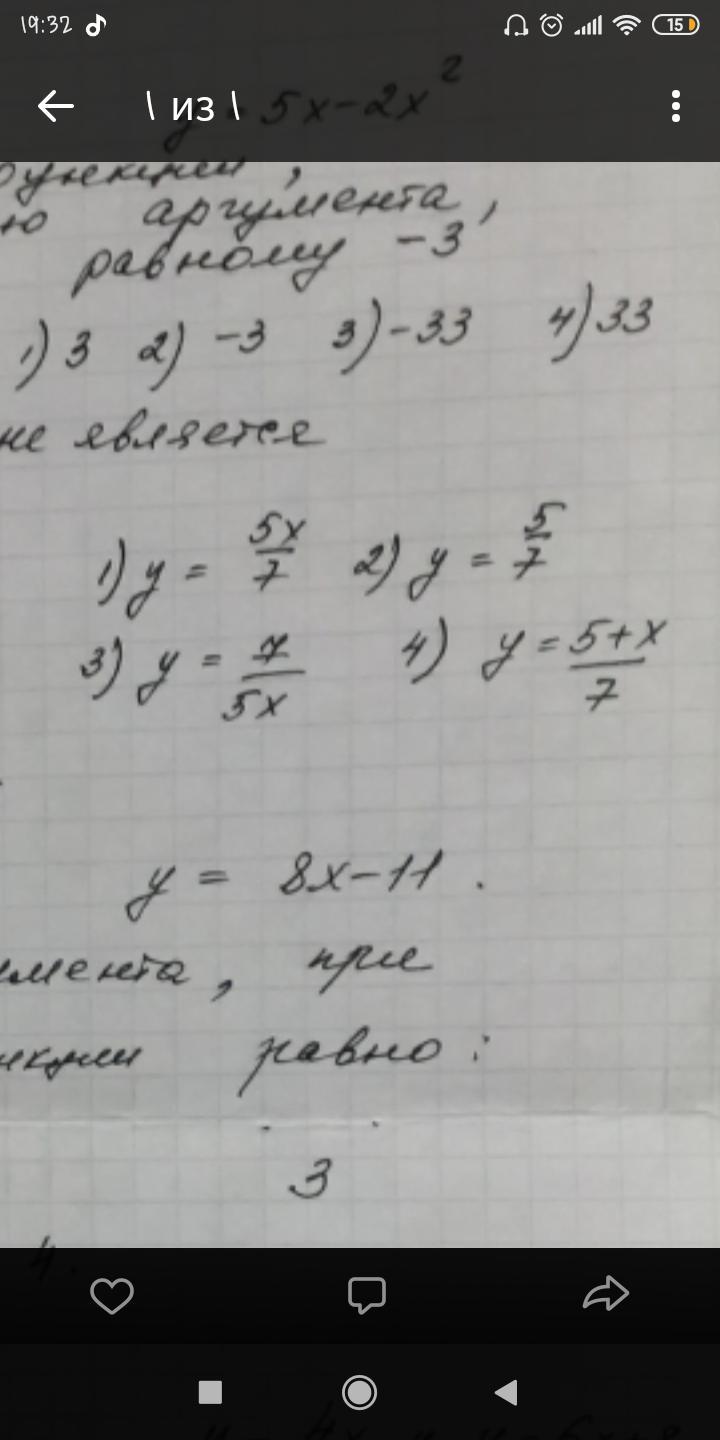 19:32 15
1 из 1
y = 5x-2x²
функции,
ю аргумента,
равному -3
1) 3 2) -3 3) -33 4) 33
не является
1) y = 5x/7 2) y = 5/7
3) y = 7/5x 4) y = 5+x/7
y = 8x-11.
умента, при
нкции равно:
3
4.